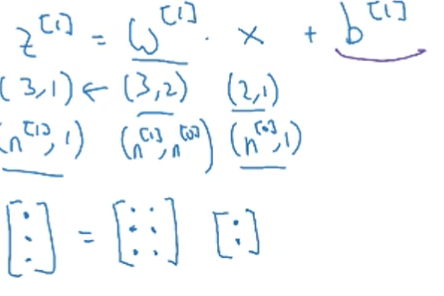 z^[1] = W^[1] · x + b^[1]
(3,1) ← (3,2) (2,1)
(n^[1],1) (n^[1],n^[0]) (n^[0],1)
[⋮] = [⋮⋮] [:]